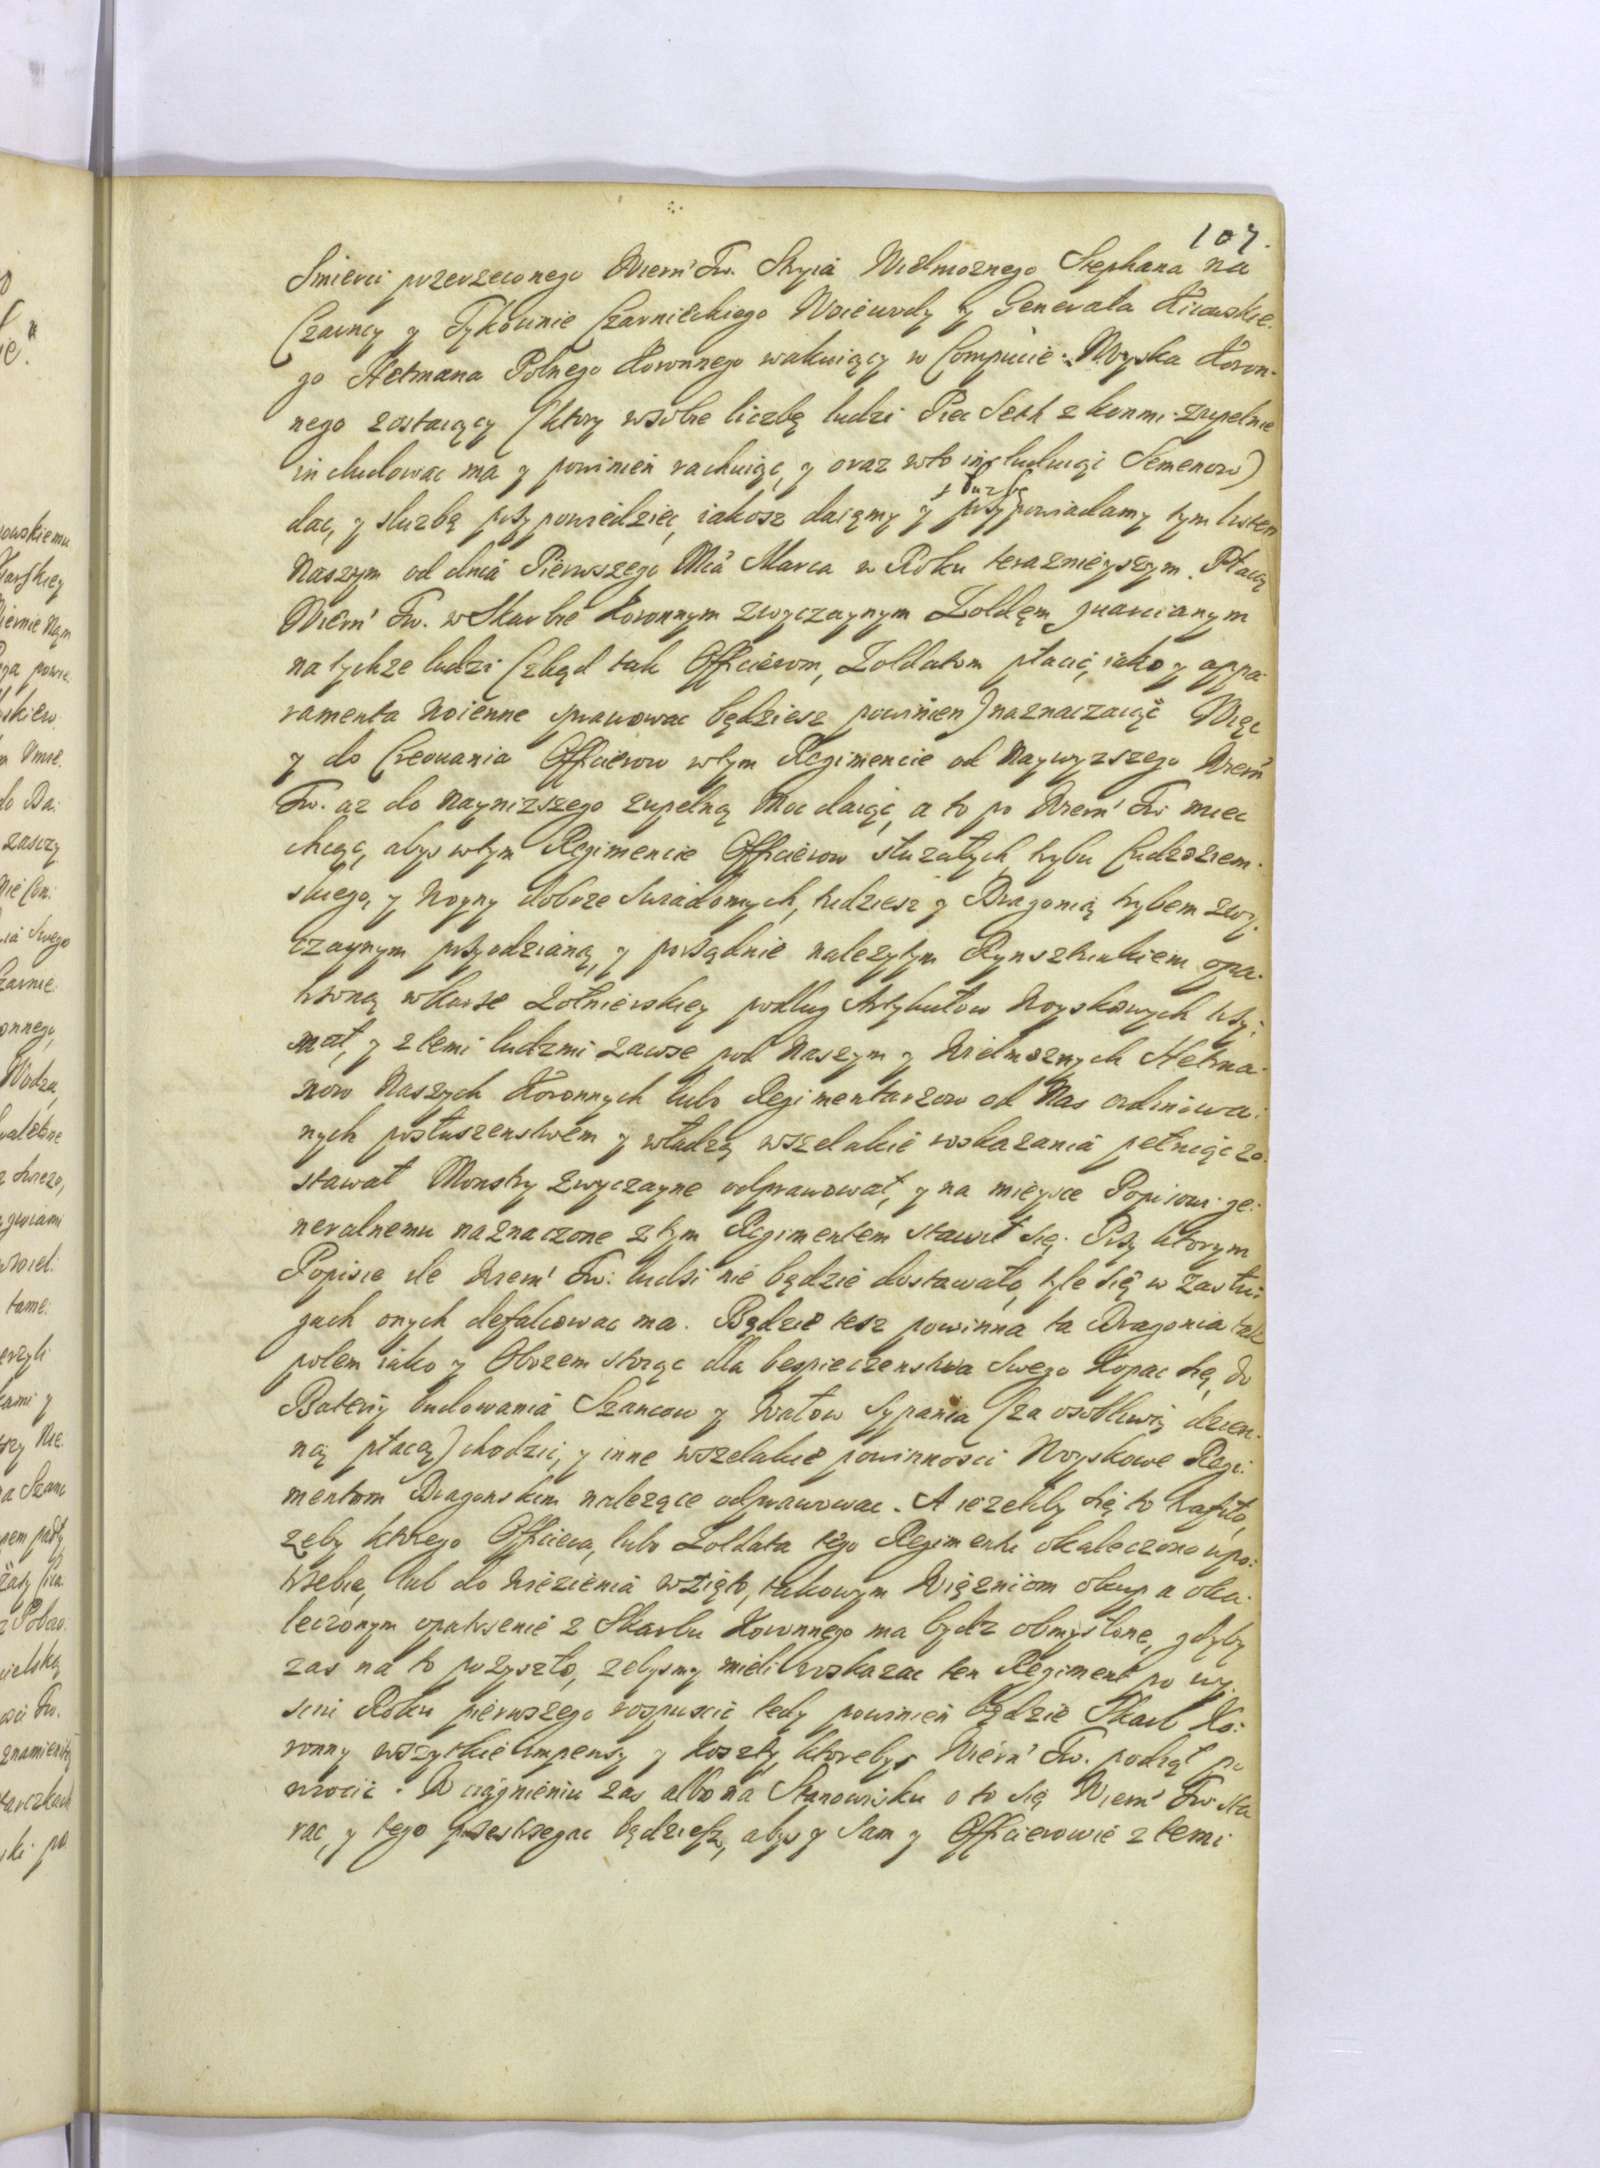 107.
Smierci przerzeconego Wiern' Tw. Stryia Wielmoznego Stephana na
Czarncy y Tykocinie Czarnieckiego Woiewody y Generała Kiiowskie-
go Hetmana Polnego Koronnego wakuiący w Compucie Woyska Koron-
nego zostaiący (ktory wsobie liczbę ludzi Piec Seth z konmi zupełnie
includowac ma y powinien rachuiąc, y oraz wto includuiąc Semenow)
służbę
dac, y sluzbę przypowiedziec, iakosz daięmy y przypowiadamy tym listem
Naszym od dnia Pierwszego Mca Marca w Roku teraznieyszym. Płacą
Wiern' Tw. w Skarbie Koronnym zwyczaynym Zoldęm quarcianym
na tychze ludzi (zkąd tak Officierom, Zoldatom płacić, iako y appa-
ramenta Woienne sprawowac będziesz powinien) naznaczaiąc Więc
y do Creowania Officierow wtym Regimencie od Naywyzszego Wiern'
Tw. az do Naynizszego zupełną Moc daiąc, a to po Wiern' Tw miec
chcąc, abys wtym Regimencie Officierow słuzałych trybu Cudzoziem-
skiego, y Woyny dobrze swiadomych, tudziesz y Dragonią trybem zwy-
czaynym przyodzianą, y porządnie nalezytym Rynsztunkiem opa-
trzoną w kurze Zołnierskiey podług Artykułow Woyskowych trzy-
mał, y z temi ludzmi zawsze pod Naszym y Wielmoznych Hetma-
now Naszych Koronnych lubo Regimentarzow od Nas ordinowa-
nych posłuszenstwem y władzą wszelakie roskazania pełniąc zo-
stawał Monstry zwyczayne odprawował, y na mieysce Popisowi ge-
neralnemu naznaczone z tym Regimentem stawił się. Przy ktorym
Popisie ile Wiern' Tw: ludzi nie będzie dostawało, tyle się w zasłu-
gach onych defalcowac ma. Będzie tesz powinna ta Dragonia tak
polem iako y Obozem stoiąc dla bespieczenstwa Swego Kopac się, do
Bateriy budowania Szancow y Wałow Sypania (za osobliwą dzien-
ną płacą) chodzic, y inne wszelakie powinnosci Woyskowe Regi-
mentom Dragonskim nalezące odprawowac. A iezeliby się to trafiło,
zeby ktorego Officiera, lubo Zoldata tego Regimentu okaleczono wpo-
trzebie, lub do Więzienia wzięto, takowym Więzniom okup a oka-
leczonym opatrzenie z Skarbu Koronnego ma bydz obmyslone, gdyby
zas na to przyszło, zebysmy mieli roskazac ten Regiment po wy-
sciu Roku pierwszego rospuscic tedy powinien będzie Skarb Ko-
ronny wszytkie impensy y koszty, ktorebys Wiern' Tw. podiął po
wrocic. W ciągnieniu zas albo na Stanowisku o to się Wiern' Tw sta
rac, y tego przestrzegac będziesz, abys y Sam y Officierowie z temi